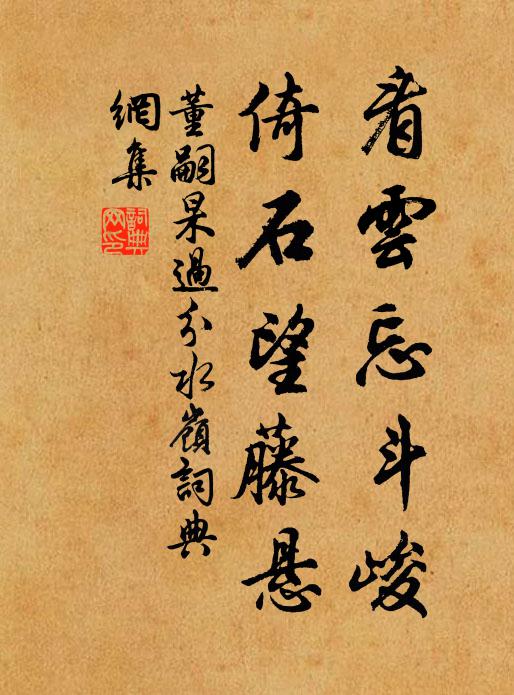 看雲忘斗峻
倚石望藤悬
董嗣杲過分水嶺詞典
網集
詞典
网印